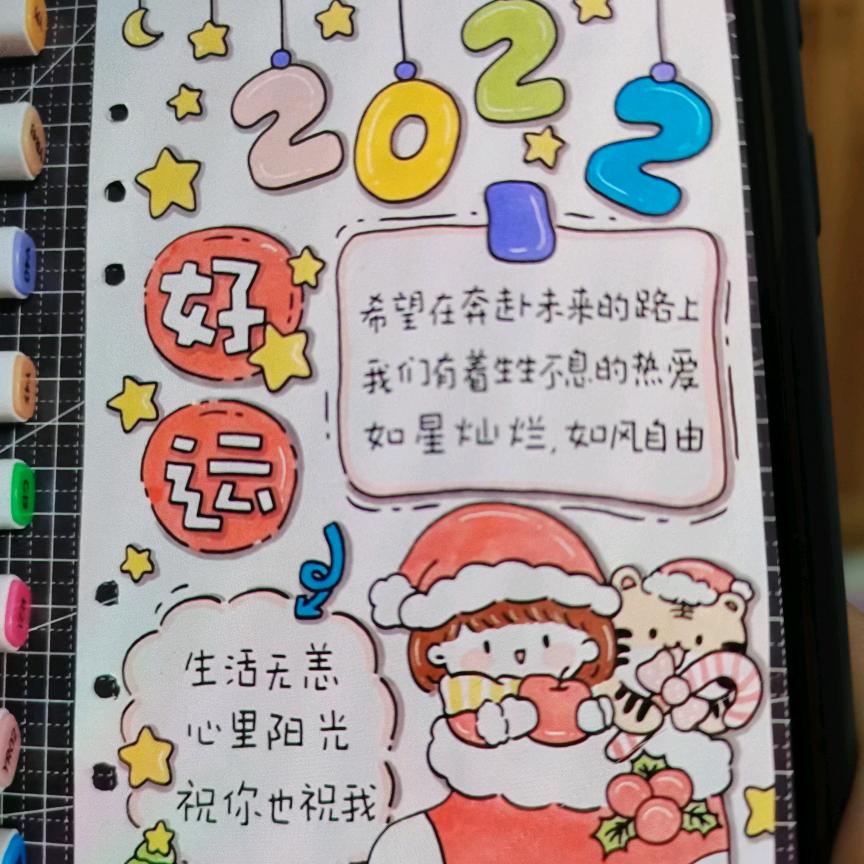 2022
好运
希望在奔赴未来的路上
我们有着生生不息的热爱
如星灿烂,如风自由
生活无恙
心里阳光
祝你也祝我